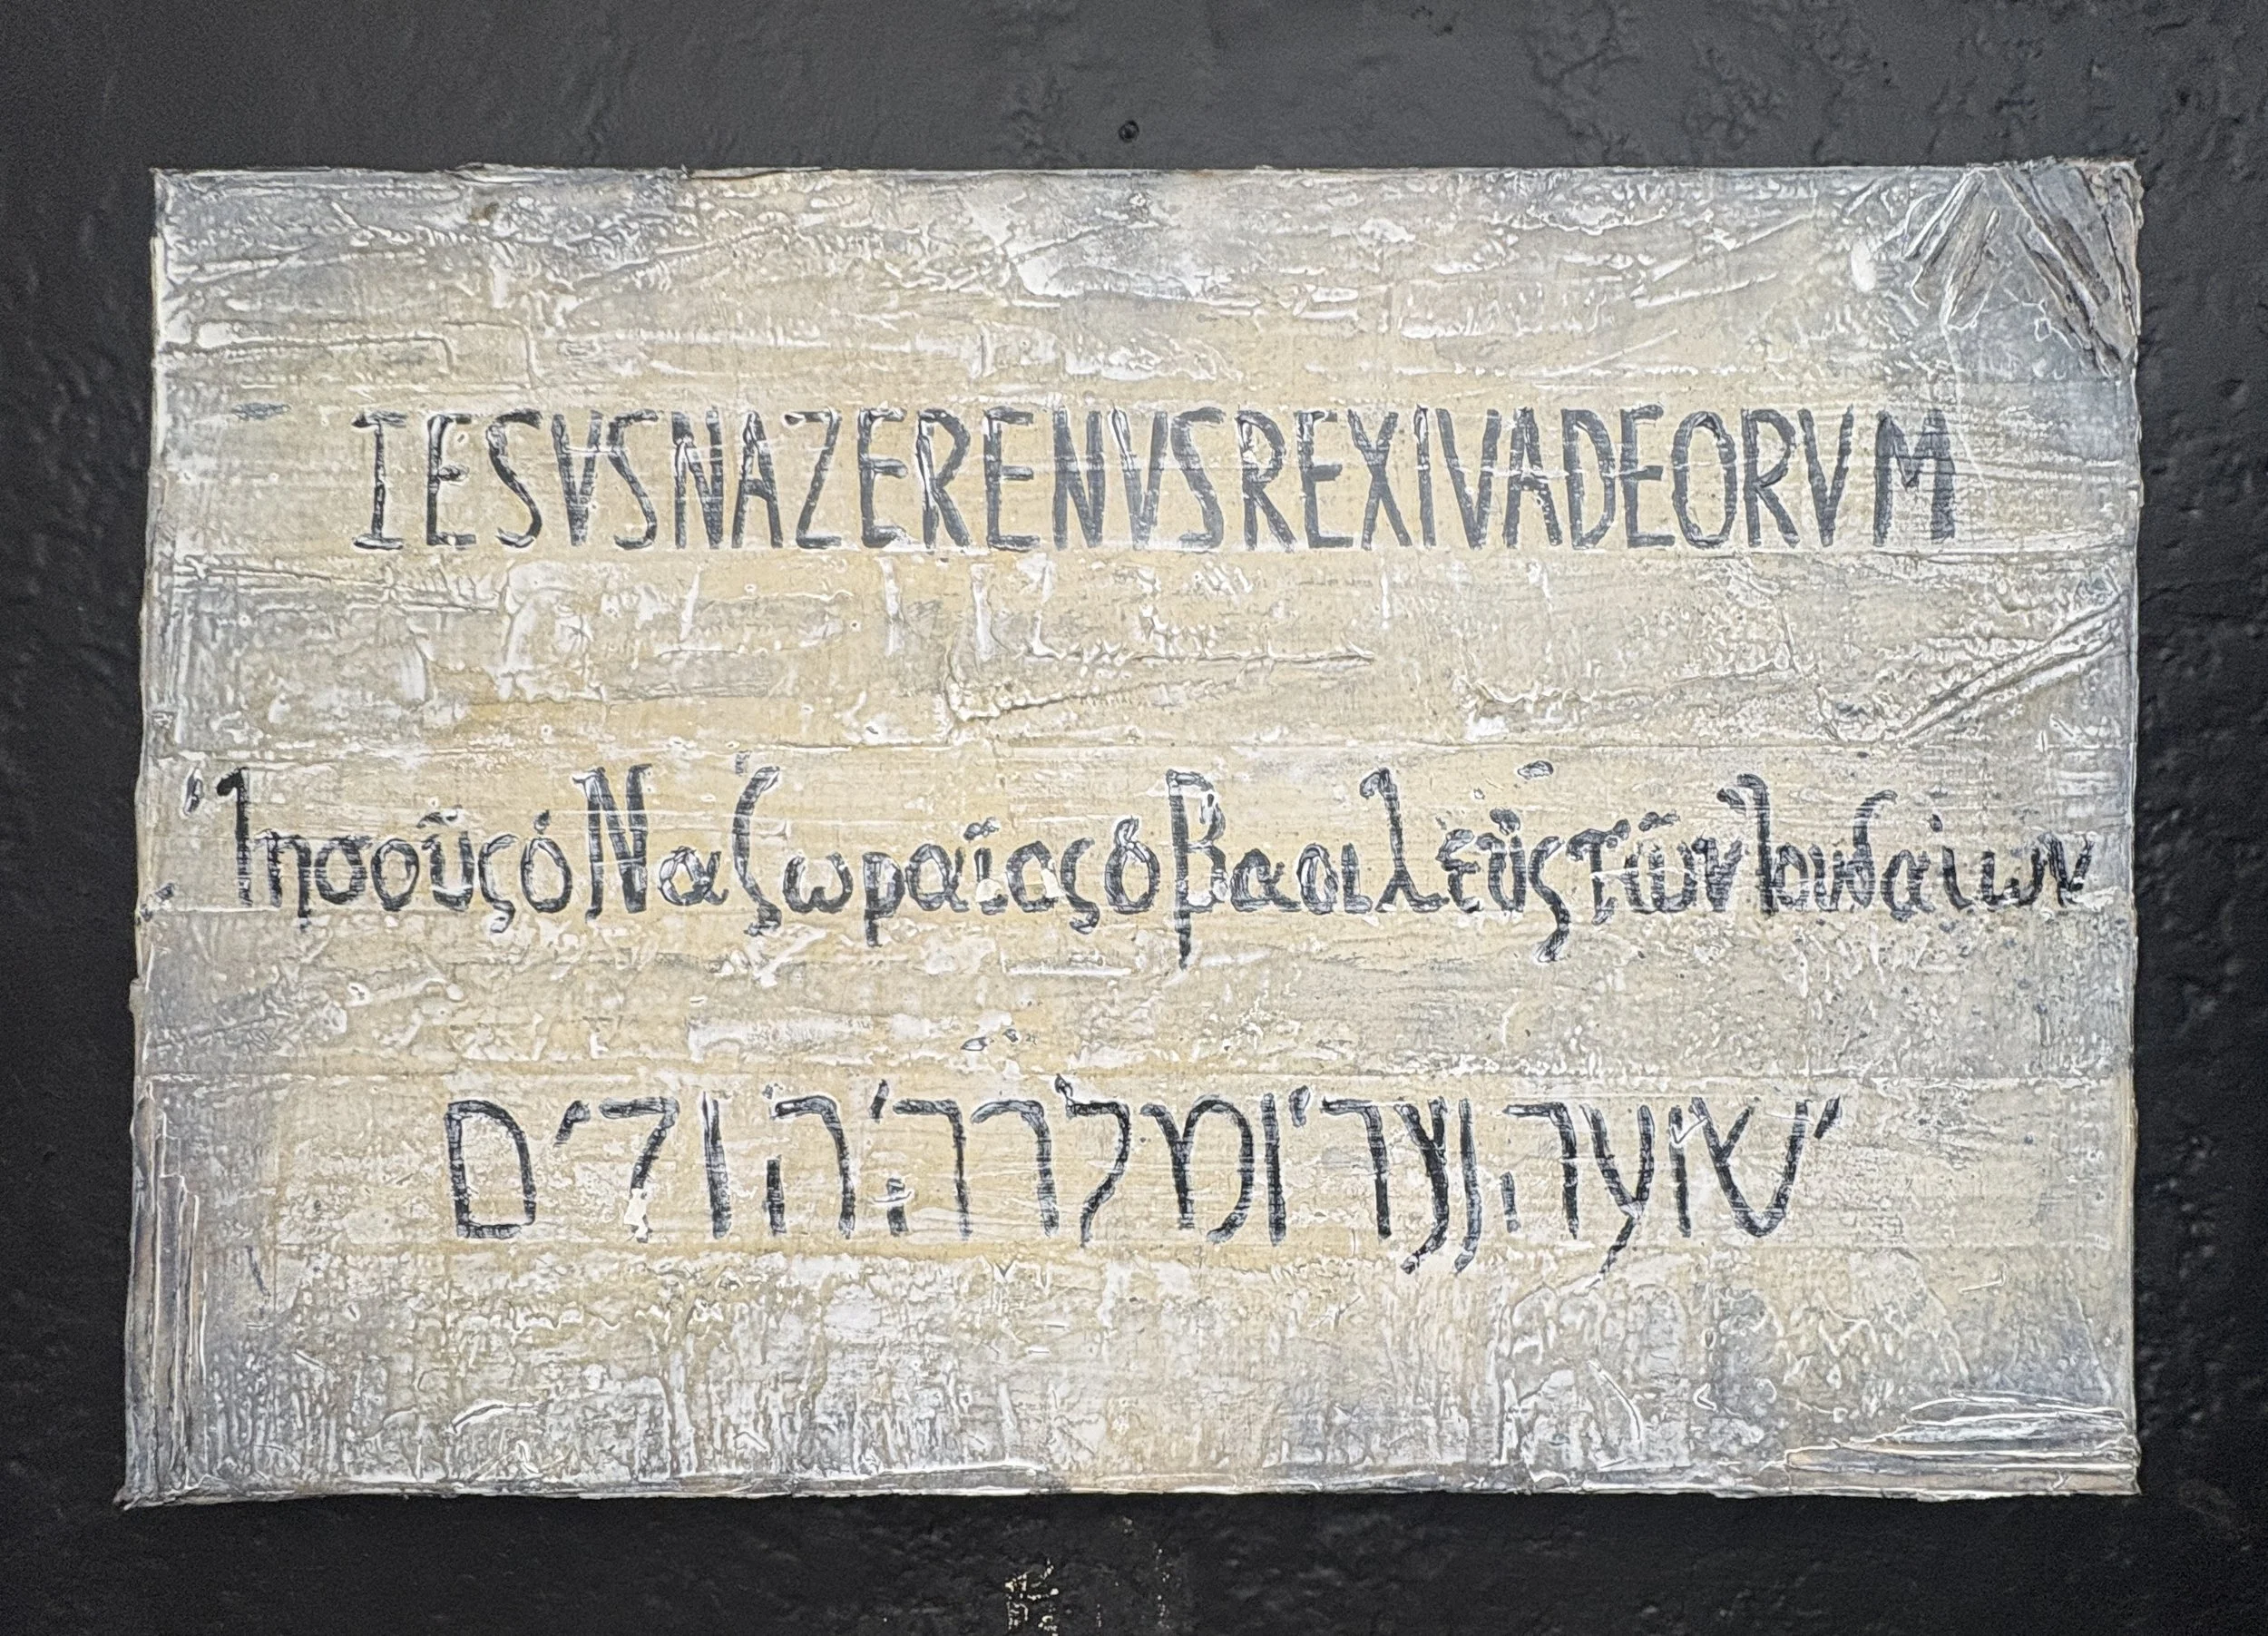 IESVSNAZERENVSREXIVADEORVM
ἸησοῦςὁΝαζωραῖοςὁΒασιλεῦςτῶνἸουδαίων
ישועההנצריומלךהיהודים